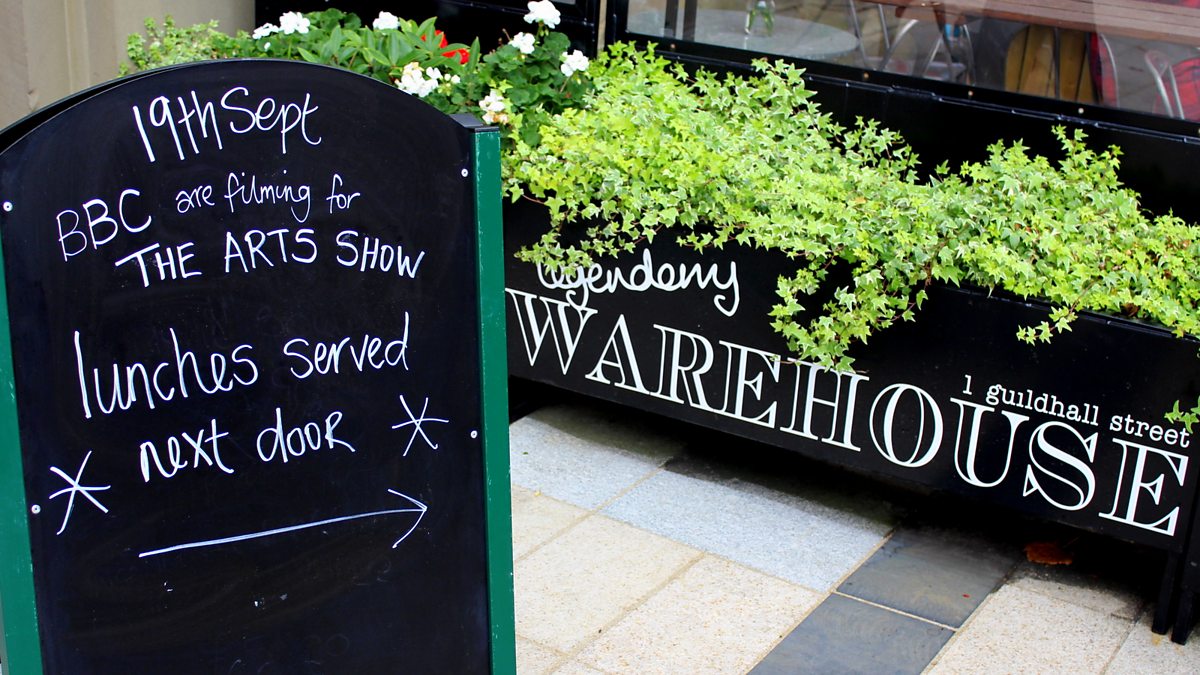 19th Sept
BBC are filming for
THE ARTS SHOW
lunches served
next door
legendenny
WAREHOUSE
1 guildhall street